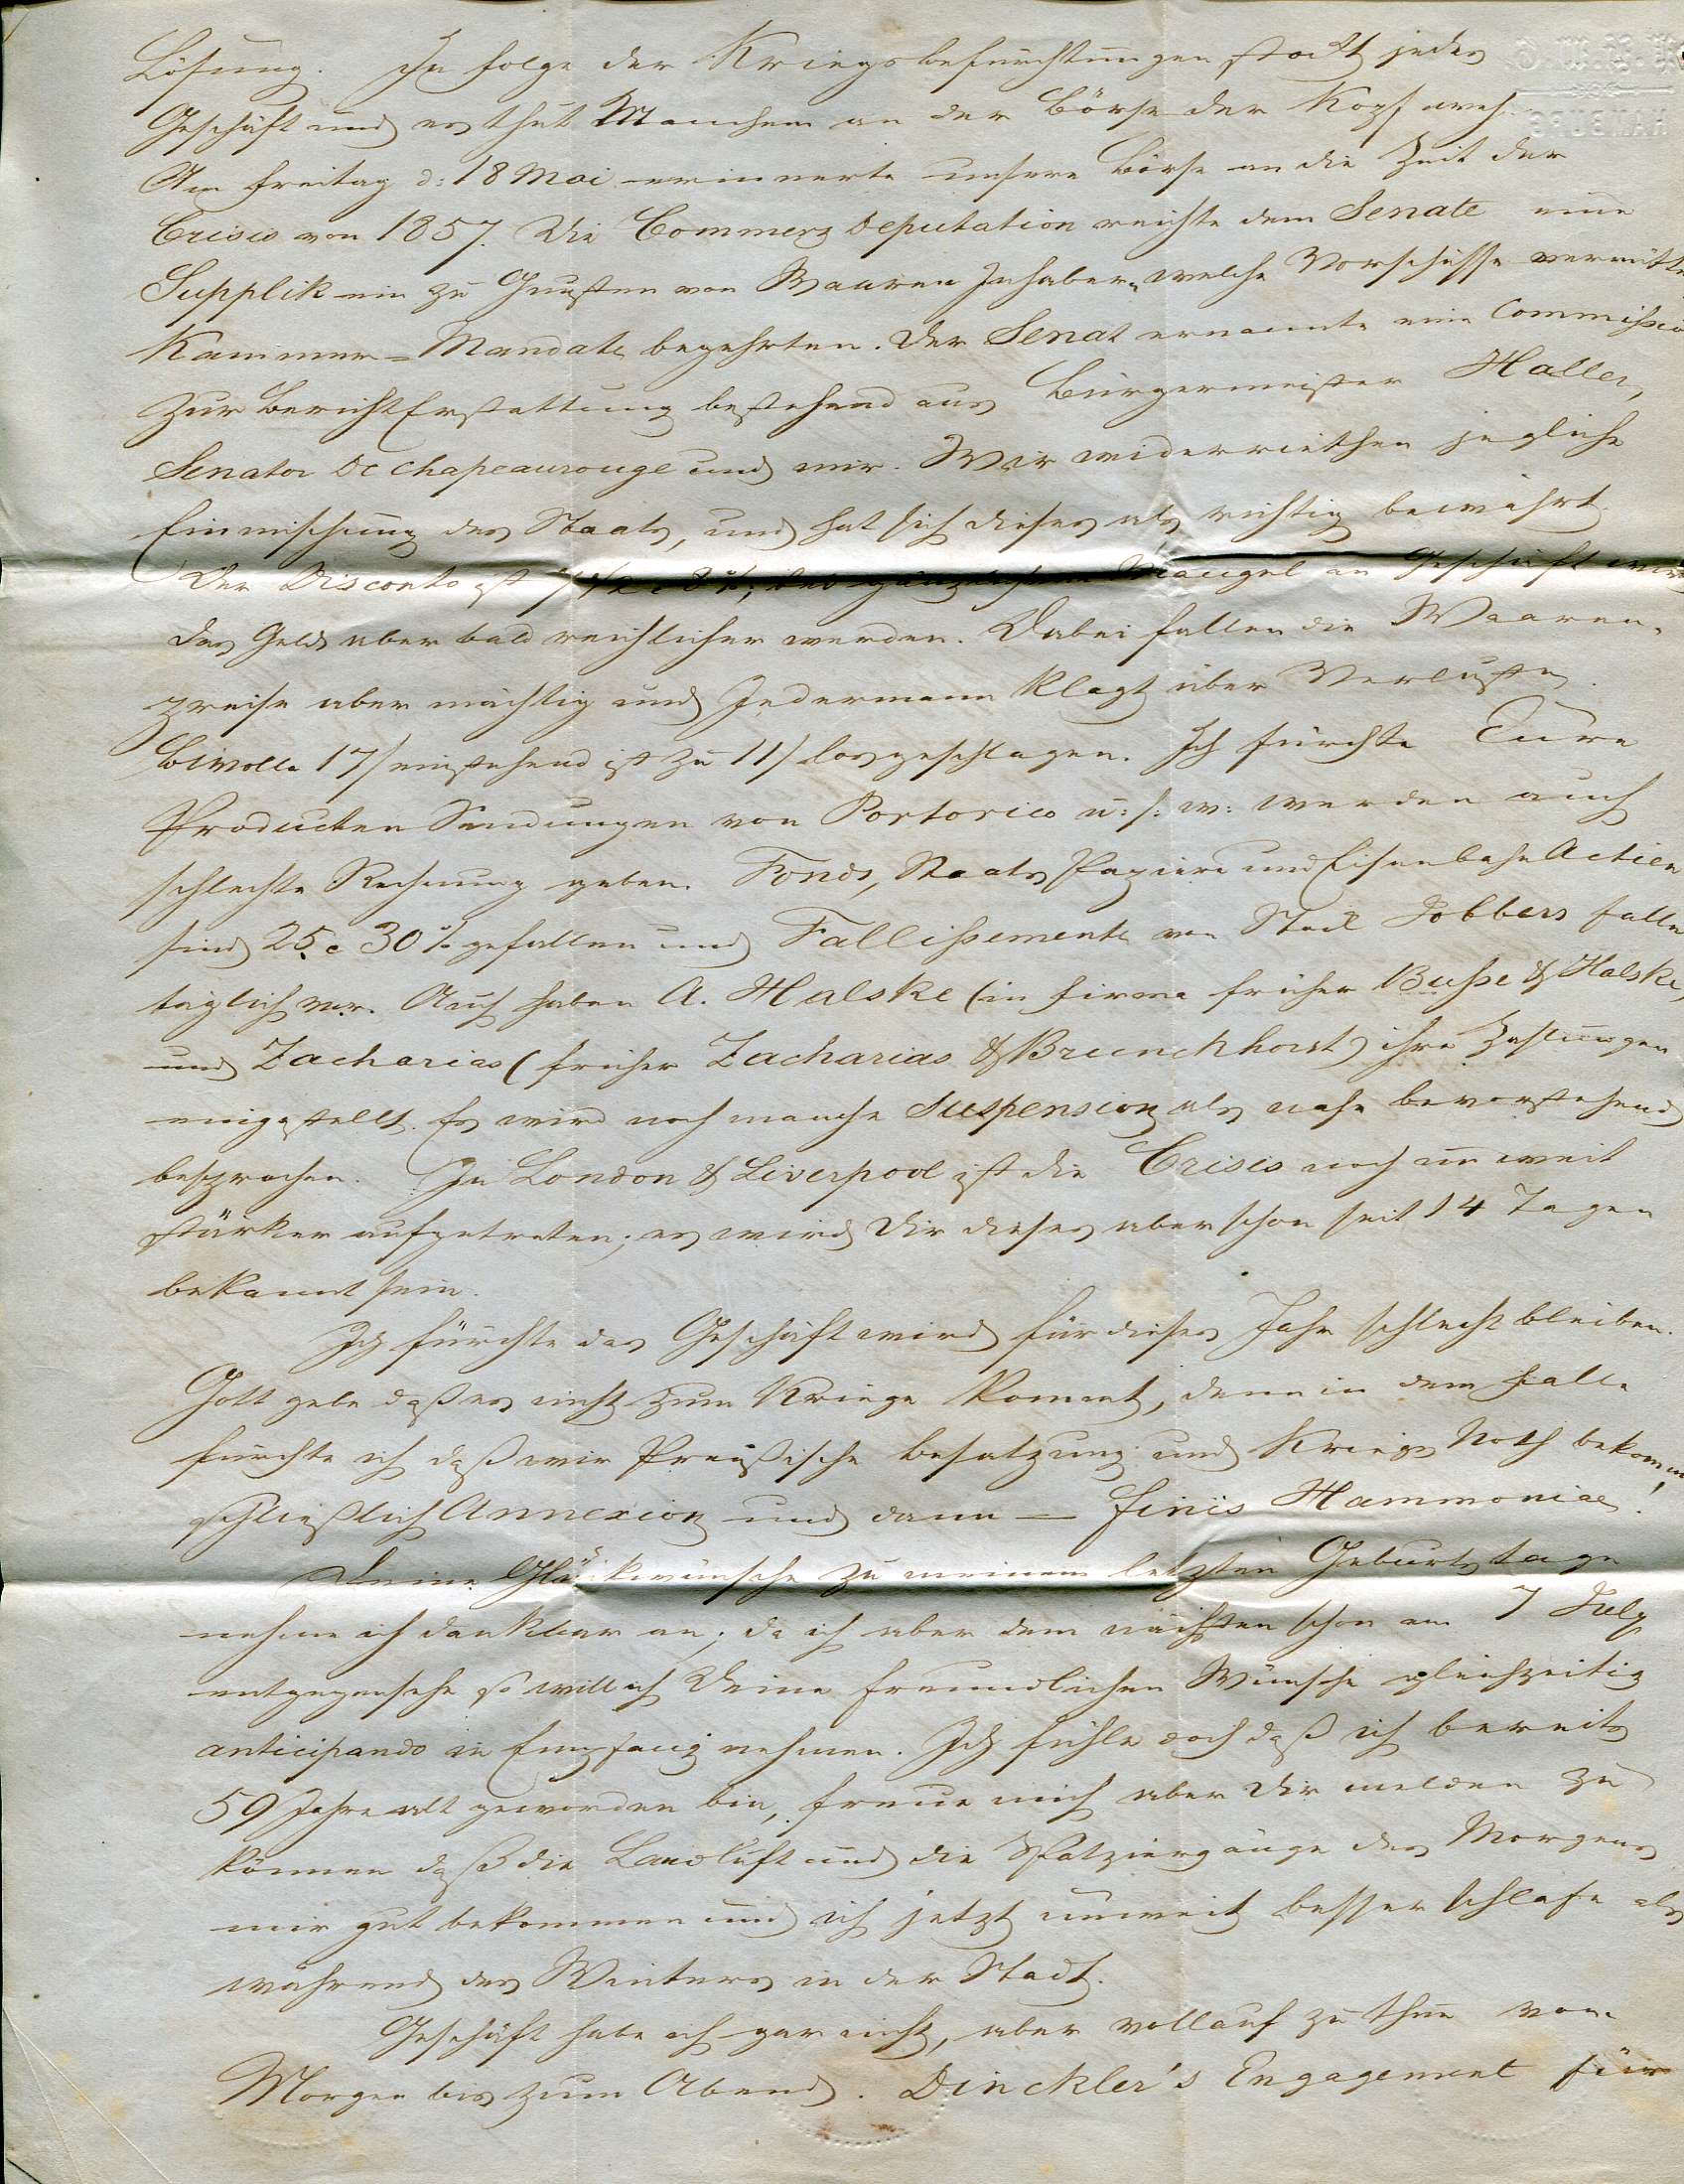 Lösung. In Folge der Kriegsbefürchtungen stockt jedes
Geschäft und es thut Manchem an der Börse der Kopf weh.
Am Freitag d: 18 Mai erinnerte unsere Börse an die Zeit der
Crisis von 1857. Die Commerz Deputation reichte dem Senate eine
Supplik ein zu Gunsten von Waaren Inhabern, welche Vorschüsse vermittelst
Kammer-Mandate begehrten. Der Senat ernannte eine Commission
zur BerichtErstattung bestehend aus Bürgermeister Haller,
Senator De Chapeaurouge und mir. Wir widerriethen jegliche
Einmischung des Staats, und hat sich dieses als richtig bewährt.
Der Disconto ist 7 1/2 a 8 %; bei gänzlichem Mangel an Geschäft wird
das Geld aber bald reichlicher werden. Dabei fallen die Waaren-
preise aber mächtig und Jedermann klagt über Verluste.
17/ einstehend ist zu 11/ losgeschlagen. Ich fürchte Eure
Producten Sendungen von Portorico u: s: w: werden auch
schlechte Rechnung geben. Fonds, Staats Papiere und Eisenbahn Actien
sind 25 a 30 % gefallen und Fallissemente von Stock Jobbers fallen
täglich vor. Auch haben A. Halske (in Firma früher Busse & Halske)
und Zacharias (früher Zacharias & Brunckhorst) ihre Zahlungen
eingestellt. Es wird noch manche Suspension als nahe bevorstehend
besprochen. In London & Liverpool ist die Crisis noch um weit
stärker aufgetreten; es wird Dir dieses aber schon seit 14 Tagen
bekannt sein.
Ich fürchte das Geschäft wird für dieses Jahr schlecht bleiben.
Gott gebe daß es nicht zum Kriege kommt, denn in dem Falle
fürchte ich daß wir Preußische Besatzung und Kriegs Noth bekommen
schließlich Annexion und dann — finis Hammoniae!
Deine Glückwünsche zu meinem letzten Geburtstage
nehme ich dankbar an; da ich aber dem nächsten schon am 7 July
entgegensehe so will ich Deine freundlichen Wünsche gleichzeitig
anticipando in Empfang nehmen. Ich fühle doch daß ich bereits
59 Jahre alt geworden bin, freue mich aber Dir melden zu
können daß die Landluft und die Spatziergänge des Morgens
mir gut bekommen und ich jetzt unweit besser schlafe als
während des Winters in der Stadt.
Geschäft habe ich gar nicht, aber vollauf zu thun vom
Morgen bis zum Abend. Dinckler's Engagement für
HAMBURG